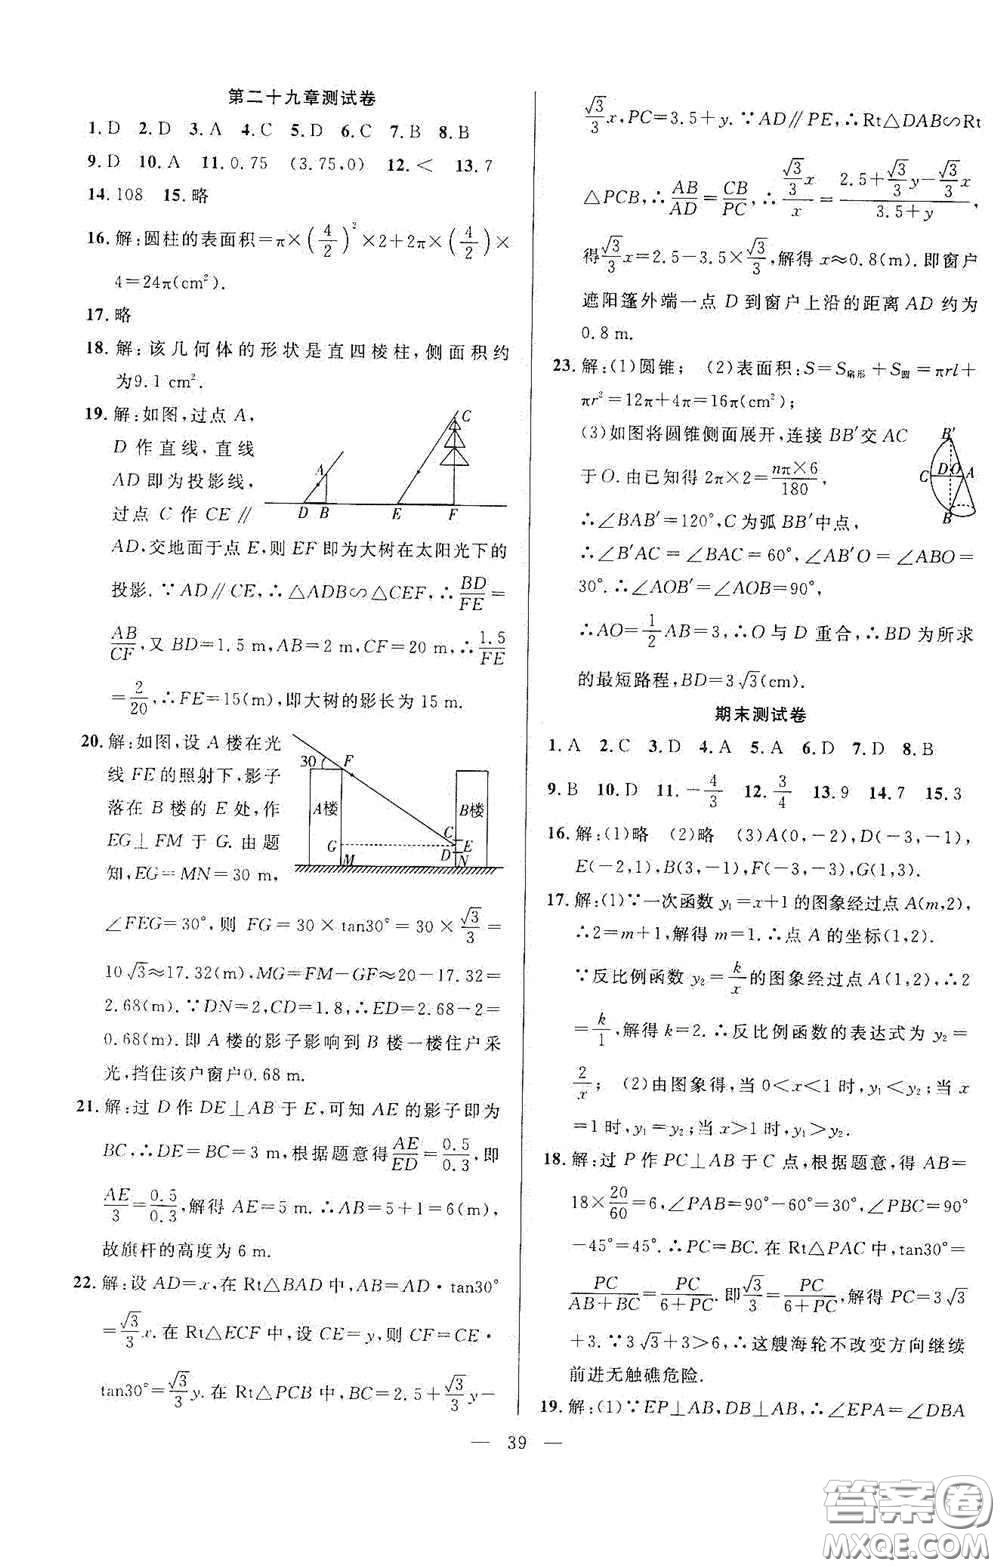 第二十九章测试卷
1. D 2. D 3. A 4. C 5. D 6. C 7. B 8. B
9. D 10. A 11. 0.75 (3.75,0) 12. < 13. 7
14. 108 15. 略
16. 解:圆柱的表面积=π×(4/2)²×2+2π×(4/2)×
4=24π(cm²).
17. 略
18. 解:该几何体的形状是直四棱柱,侧面积约
为9.1 cm².
19. 解:如图,过点 A,
D 作直线,直线
AD 即为投影线,
过点 C 作 CE∥
A D B E F C
AD,交地面于点 E,则 EF 即为大树在太阳光下的
投影. ∵AD∥CE,∴△ADB∽△CEF,∴BD/FE=
AB/CF,又 BD=1.5m,AB=2 m,CF=20 m,∴1.5/FE
=2/20,∴FE=15(m),即大树的影长为 15 m.
20. 解:如图,设 A 楼在光
线 FE 的照射下,影子
落在 B 楼的 E 处,作
EG⊥FM 于 G. 由题
知,EG=MN=30 m,
30° F A楼 B楼 G M C E D N
∠FEG=30°, 则 FG=30×tan30°=30×√3/3=
10√3≈17.32(m),MG=FM-GF≈20-17.32=
2.68(m). ∵DN=2,CD=1.8,∴ED=2.68-2=
0.68(m). 即 A 楼的影子影响到 B 楼一楼住户采
光,挡住该户窗户0.68 m.
21. 解:过 D 作 DE⊥AB 于 E,可知 AE 的影子即为
BC,∴DE=BC=3 m,根据题意得AE/ED=0.5/0.3,即
AE/3=0.5/0.3,解得 AE=5 m. ∴AB=5+1=6(m),
故旗杆的高度为 6 m.
22. 解:设 AD=x,在 Rt△BAD 中,AB=AD·tan30°
=√3/3x. 在 Rt△ECF 中,设 CE=y,则 CF=CE·
tan30°=√3/3y. 在 Rt△PCB 中,BC=2.5+√3/3y-
√3/3x,PC=3.5+y. ∵AD∥PE,∴Rt△DAB∽Rt
△PCB,∴AB/AD=CB/PC,∴(√3/3x)/x=(2.5+√3/3y-√3/3x)/(3.5+y),
得√3/3x=2.5-3.5×√3/3,解得 x≈0.8(m). 即窗户
遮阳篷外端一点 D 到窗户上沿的距离 AD 约为
0.8 m.
23. 解:(1)圆锥; (2)表面积:S=S扇形+S圆=πrl+
πr²=12π+4π=16π(cm²);
(3)如图将圆锥侧面展开,连接 BB′交 AC
于 O. 由已知得 2π×2=nπ×6/180,
B′ C D O A B
∴∠BAB′=120°,C为弧 BB′中点,
∴∠B′AC=∠BAC=60°,∠AB′O=∠ABO=
30°. ∴∠AOB′=∠AOB=90°,
∴AO=1/2AB=3,∴O 与 D 重合,∴BD 为所求
的最短路程,BD=3√3(cm).
期末测试卷
1. A 2. C 3. D 4. A 5. A 6. D 7. D 8. B
9. B 10. D 11. -4/3 12. 3/4 13. 9 14. 7 15. 3
16. 解:(1)略 (2)略 (3)A(0,-2),D(-3,-1),
E(-2,1),B(3,-1),F(-3,-3),G(1,3).
17. 解:(1)∵一次函数 y₁=x+1 的图象经过点 A(m,2),
∴2=m+1,解得 m=1. ∴点 A 的坐标(1,2).
∵反比例函数 y₂=k/x的图象经过点 A(1,2),∴2
=k/1,解得 k=2. ∴反比例函数的表达式为 y₂=
2/x; (2)由图象得,当 0<x<1 时,y₁<y₂;当 x
=1时,y₁=y₂;当 x>1时,y₁>y₂.
18. 解:过 P 作 PC⊥AB 于 C 点,根据题意,得 AB=
18×20/60=6,∠PAB=90°-60°=30°,∠PBC=90°
-45°=45°. ∴PC=BC. 在 Rt△PAC 中,tan30°=
PC/(AB+BC)=PC/(6+PC). 即√3/3=PC/(6+PC),解得 PC=3√3
+3. ∵3√3+3>6,∴这艘海轮不改变方向继续
前进无触礁危险.
19. 解:(1)∵EP⊥AB,DB⊥AB,∴∠EPA=∠DBA
— 39 —
答案圈
MXQE.COM